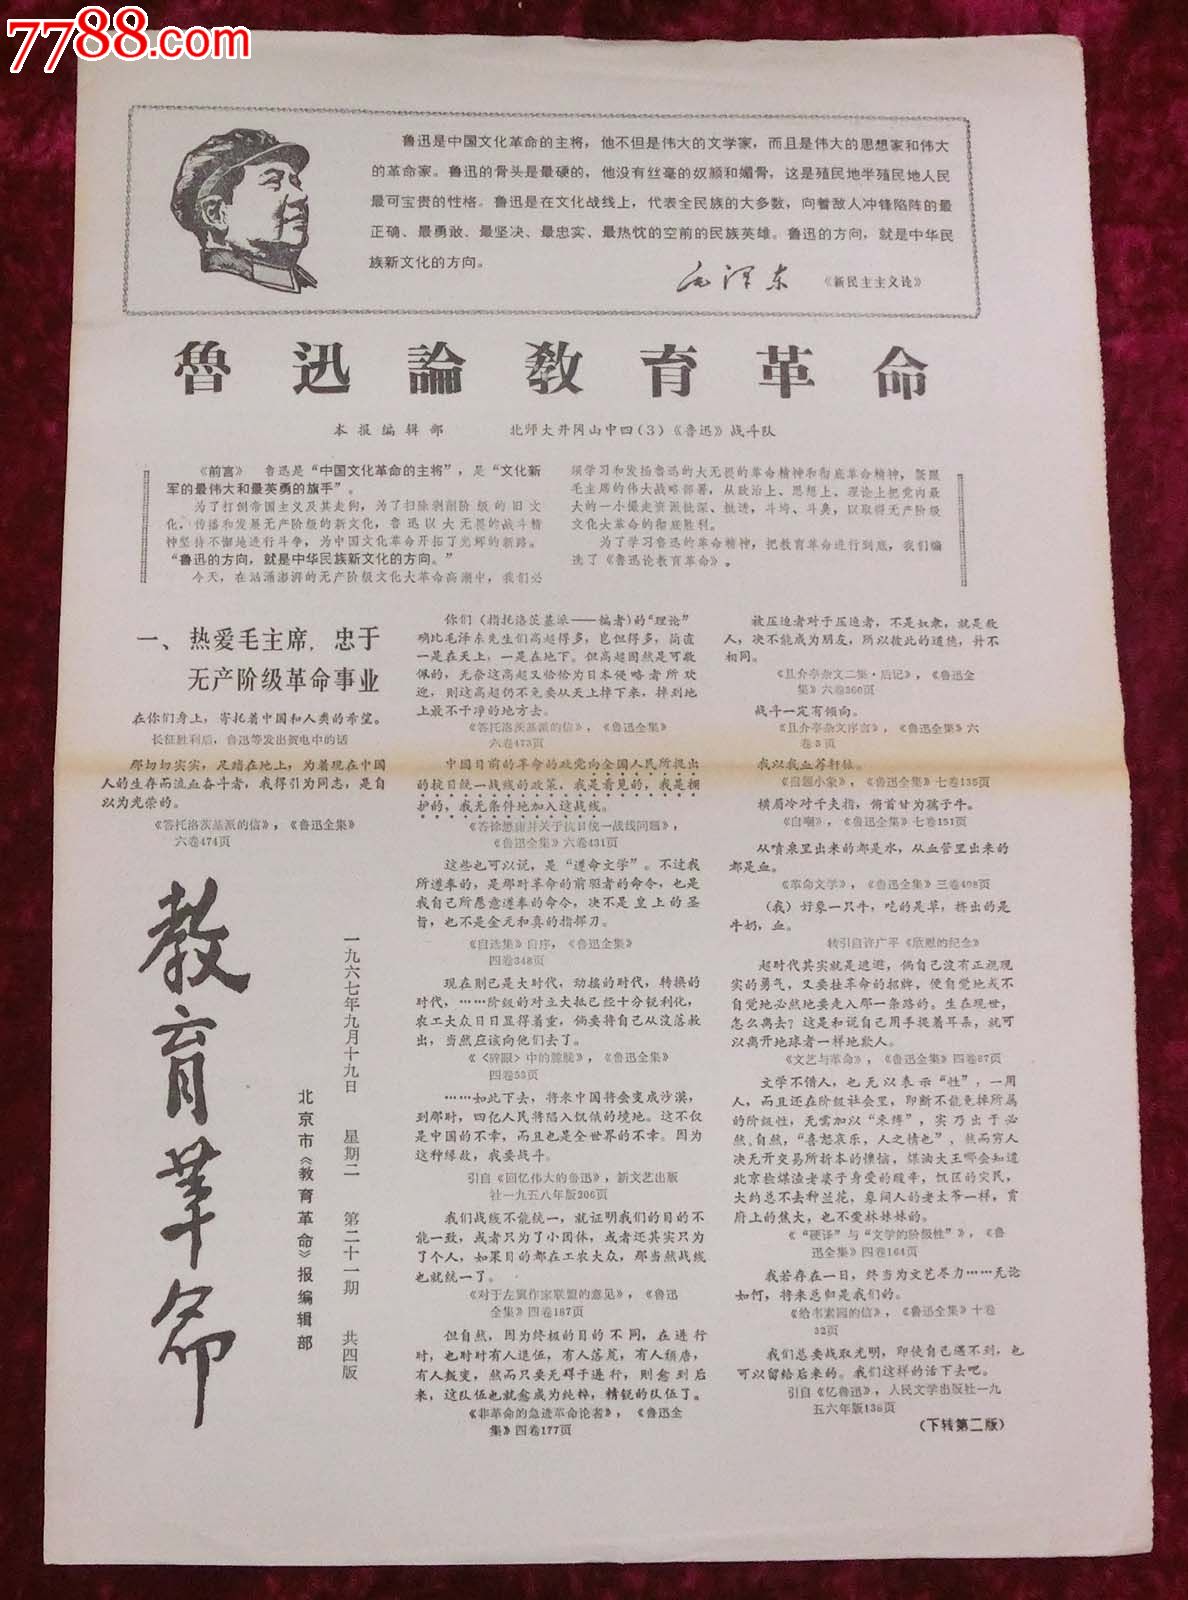 7788.com
鲁迅是中国文化革命的主将，他不但是伟大的文学家，而且是伟大的思想家和伟大
的革命家。鲁迅的骨头是最硬的，他没有丝毫的奴颜和媚骨，这是殖民地半殖民地人民
最可宝贵的性格。鲁迅是在文化战线上，代表全民族的大多数，向着敌人冲锋陷阵的最
正确、最勇敢、最坚决、最忠实、最热忱的空前的民族英雄。鲁迅的方向，就是中华民
族新文化的方向。
毛泽东 《新民主主义论》
魯迅論教育革命
本报编辑部 北师大井冈山中四(3)《鲁迅》战斗队
《前言》 鲁迅是“中国文化革命的主将”，是“文化新
军的最伟大和最英勇的旗手”。
为了打倒帝国主义及其走狗，为了扫除剥削阶级的旧文
化，传播和发展无产阶级的新文化，鲁迅以大无畏的战斗精
神坚持不懈地进行斗争，为中国文化革命开拓了光辉的新路。
“鲁迅的方向，就是中华民族新文化的方向。”
今天，在汹涌澎湃的无产阶级文化大革命高潮中，我们必
须学习和发扬鲁迅的大无畏的革命精神和彻底革命精神，紧跟
毛主席的伟大战略部署，从政治上、思想上、理论上把党内最
大的一小撮走资派批深、批透，斗垮、斗臭，以取得无产阶级
文化大革命的彻底胜利。
为了学习鲁迅的革命精神，把教育革命进行到底，我们编
选了《鲁迅论教育革命》。
一、热爱毛主席，忠于
无产阶级革命事业
在你们身上，寄托着中国和人类的希望。
长征胜利后，鲁迅等发出贺电中的话
那切切实实，足踏在地上，为着现在中国
人的生存而流血奋斗者，我得引为同志，是自
以为光荣的。
《答托洛茨基派的信》，《鲁迅全集》
六卷474页
教育革命
一九六七年九月十九日 星期二 第二十一期 共四版
北京市《教育革命》报编辑部
你们（指托洛茨基派——编者）的“理论”
确比毛泽东先生们高超得多，岂但得多，简直
一是在天上，一是在地下。但高超固然是可敬
佩的，无奈这高超又恰恰为日本侵略者所欢
迎，则这高超仍不免要从天上掉下来，掉到地
上最不干净的地方去。
《答托洛茨基派的信》，《鲁迅全集》
六卷473页
中国目前的革命的政党向全国人民所提出
的抗日统一战线的政策，我是看见的，我是拥
护的，我无条件地加入这战线。
《答徐懋庸并关于抗日统一战线问题》，
《鲁迅全集》六卷431页
这些也可以说，是“遵命文学”。不过我
所遵奉的，是那时革命的前驱者的命令，也是
我自己所愿意遵奉的命令，决不是皇上的圣
旨，也不是金元和真的指挥刀。
《自选集》自序，《鲁迅全集》
四卷348页
现在则已是大时代，动摇的时代，转换的
时代，……阶级的对立大抵已经十分锐利化，
农工大众日日显得着重，倘要将自己从没落救
出，当然应该向他们去了。
《〈醉眼〉中的朦胧》，《鲁迅全集》
四卷53页
……如此下去，将来中国将会变成沙漠，
到那时，四亿人民将陷入饥饿的境地。这不仅
是中国的不幸，而且也是全世界的不幸。因为
这种缘故，我要战斗。
引自《回忆伟大的鲁迅》，新文艺出版
社一九五八年版206页
我们战线不能统一，就证明我们的目的不
能一致，或者只为了小团体，或者还其实只为
了个人，如果目的都在工农大众，那当然战线
也就统一了。
《对于左翼作家联盟的意见》，《鲁迅
全集》四卷187页
但自然，因为终极的目的不同，在进行
时，也时时有人退伍，有人落荒，有人颓唐，
有人叛变，然而只要无碍于进行，则愈到后
来，这队伍也就愈成为纯粹，精锐的队伍了。
《非革命的急进革命论者》，《鲁迅全
集》四卷177页
被压迫者对于压迫者，不是奴隶，就是敌
人，决不能成为朋友，所以彼此的道德，并不
相同。
《且介亭杂文二集·后记》，《鲁迅全
集》六卷360页
战斗一定有倾向。
《且介亭杂文序言》，《鲁迅全集》六
卷3页
我以我血荐轩辕。
《自题小象》，《鲁迅全集》七卷135页
横眉冷对千夫指，俯首甘为孺子牛。
《自嘲》，《鲁迅全集》七卷151页
从喷泉里出来的都是水，从血管里出来的
都是血。
《革命文学》，《鲁迅全集》三卷408页
（我）好象一只牛，吃的是草，挤出的是
牛奶，血。
转引自许广平《欣慰的纪念》
超时代其实就是逃避，倘自己没有正视现
实的勇气，又要挂革命的招牌，便自觉地或不
自觉地必然地要走入那一条路的。生在现世，
怎么离去？这是和说自己用手提着耳朵，就可
以离开地球者一样地欺人。
《文艺与革命》，《鲁迅全集》四卷67页
文学不借人，也无以表示“性”，一用
人，而且还在阶级社会里，即断不能免掉所属
的阶级性，无需加以“束缚”，实乃出于必
然。自然，“喜怒哀乐，人之情也”，然而穷人
决无开交易所折本的懊恼，煤油大王哪会知道
北京检煤渣老婆子身受的酸辛，饥区的灾民，
大约总不去种兰花，象阔人的老太爷一样，贾
府上的焦大，也不爱林妹妹的。
《“硬译”与“文学的阶级性”》，《鲁
迅全集》四卷164页
我若存在一日，终当为文艺尽力……无论
如何，将来总归是我们的。
《给韦素园的信》，《鲁迅全集》十卷
32页
我们总要战取光明，即使自己遇不到，也
可以留给后来的。我们这样的活下去吧。
引自《忆鲁迅》，人民文学出版社一九
五六年版138页
（下转第二版）